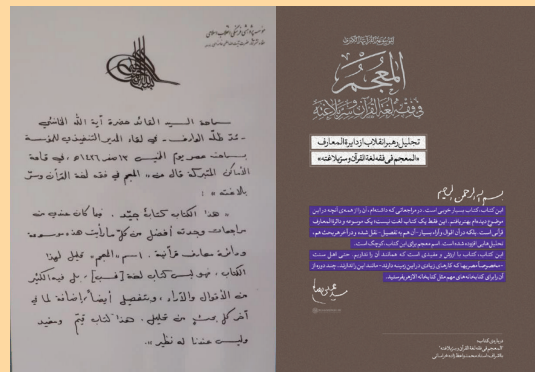 سماحة السيد القائد حضرة آية الله الخامنئي
- مدّ ظلّه الوارف - في لقاء المدير التنفيذي للمؤسسة
بسماحته عصر يوم الخميس ١٢ صفر ١٤٢٦هـ، في قاعة
الأماكن المتبركة قال عن «المعجم في فقه لغة القرآن وسرّ
بلاغته»:
« هذا الكتاب كتابٌ جيّد. فيما كان عندي من
مراجعات وجدته أفضل من كلّ ما رأيت هذه موسوعة
ودائرة معارف قرآنية. اسم «المعجم» قليل لهذا
الكتاب، فهو ليس كتاب لغة [فحسب]، بل فيه الكثير
من الأقوال والآراء، وبتفصيل أيضاً وإضافة لما في
آخر كلّ بحث من تحليل. هذا كتاب قيّم ومفيد
وليس عندنا له نظير ».
المعجم
في فقه لغة القرآن وسر بلاغته
تجلیل رهبر انقلاب از دایرة المعارف
«المعجم فی فقه لغة القرآن و سرّ بلاغته»
بسم الله الرحمن الرحیم
این کتاب، کتاب بسیار خوبی است. در مراجعاتی که داشته‌ام، آن را از همه‌ی آنچه در این
موضوع دیده‌ام بهتر یافتم. این فقط یک کتاب لغت نیست؛ یک موسوعه و دائرة المعارف
قرآنی است. بلکه در آن اقوال و آراء بسیار - آن هم به تفصیل - نقل شده و در آخر هر بحث هم،
تحلیل‌هایی افزوده شده است. اسم معجم برای این کتاب، کوچک است.
این کتاب، کتاب با ارزش و مفیدی است که همانند آن را نداریم. حتی اهل سنت
- مخصوصاً مصری‌ها که کارهای زیادی در این زمینه دارند - مانند این را ندارند. چند دوره از
آن را برای کتابخانه‌های مهم مثل کتابخانه الازهر بفرستید.
درباره‌ی کتاب:
«المعجم فی فقه لغة القرآن و سرّ بلاغته»
با اشراف استاد محمد واعظ زاده خراسانی